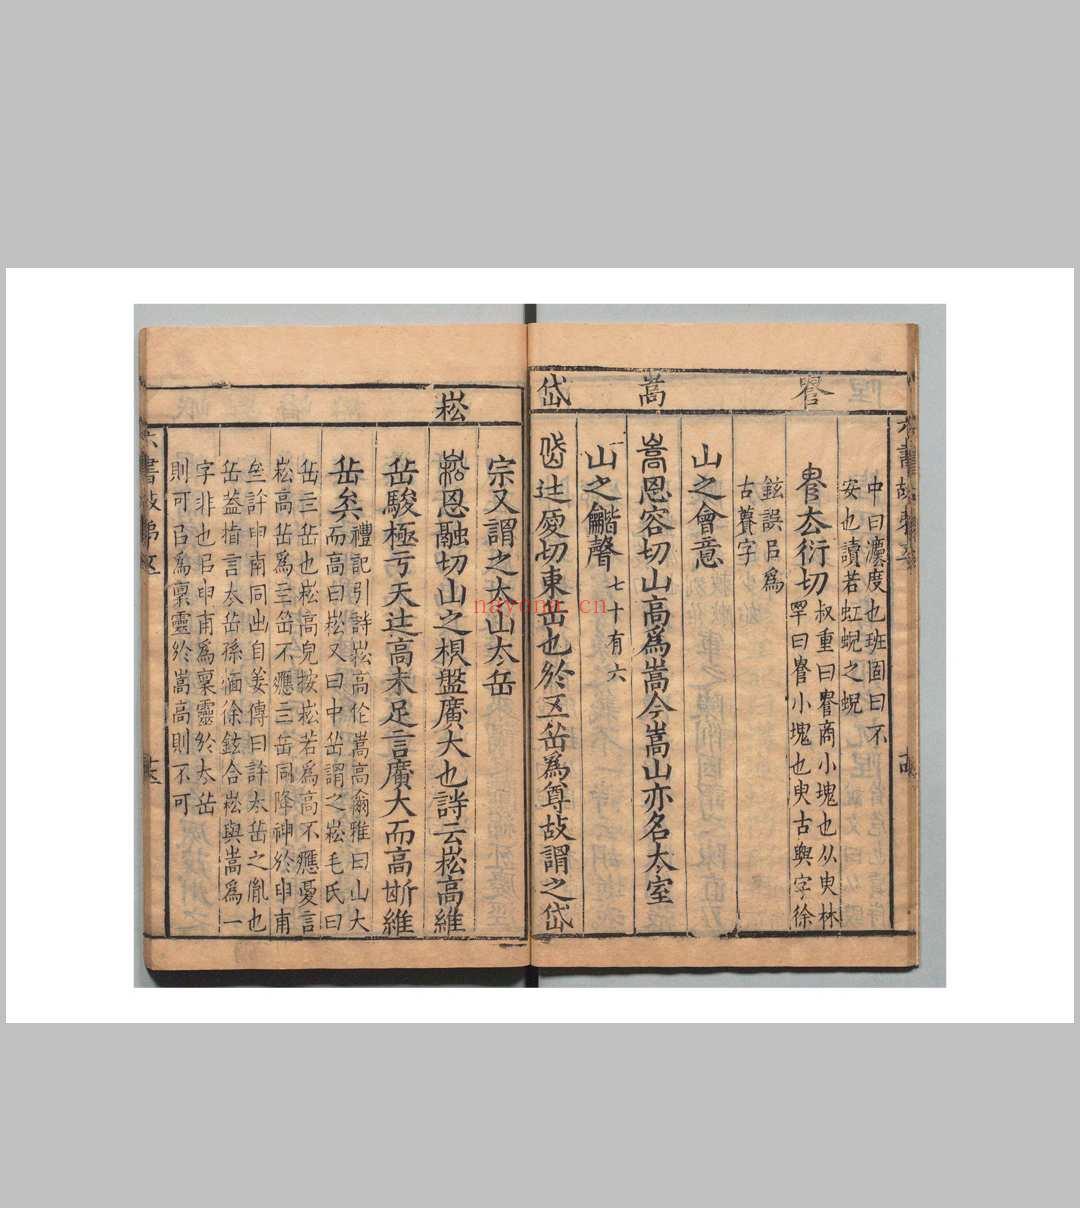 嵩
岱
中曰灋度也班固曰不
安也讀若虹蜺之蜺
去衍切
叔重曰𠳋商小塊也从臾林
罕曰𠳋小塊也臾古與字徐
鉉誤㠯為
古蕢字
山之會意
嵩恩容切山高為嵩今嵩山亦名太室
山之龤聲
七十有六
辻切東岳也於𠄡岳為尊故謂之岱
宗又謂之太山太岳
崧
恩融切山之根盤廣大也詩云崧高維
岳駿極亏天辻高未足言廣大而高斯維
岳矣
禮記引詩崧高作嵩高爾雅曰山大
而高曰崧又曰中岳謂之崧毛氏曰
岳三岳也崧高皃按崧若為高不應憂言
崧高岳為三岳不應三岳同降神於申甫
𡴎許申甫同出自姜傳曰許太岳之胤也
岳葢指言太岳孫愐徐鉉合崧與嵩為一
字非也㠯申甫為稟靈於太岳
則可㠯為稟靈於嵩高則不可
六書故弟𠄡
nayona.cn